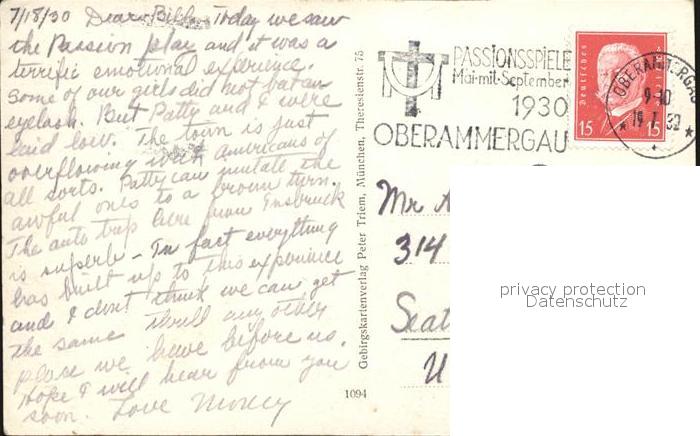 7/18/30 Dear Bill, Today we saw
the Passion play and it was a
terrific emotional experience.
Some of our girls did not bat an
eyelash. But Patty and I were
laid low. The town is just
overflowing with Americans of
all sorts. Patty can imitate the
awful ones to a brown turn.
The auto trip here from Innsbruck
is superb - In fact everything
has built up to this experience
and I dont think we can get
the same thrill any other
place we have before us.
Hope I will hear from you
soon. Love
Gebirgskartenverlag Peter Triem, München, Theresienstr. 75
1094
PASSIONSSPIELE
Mai mit September
1930
OBERAMMERGAU
Deutsches
15 15
OBERAMMERGAU
9-10
Mr
314
Seat
U
privacy protection
Datenschutz